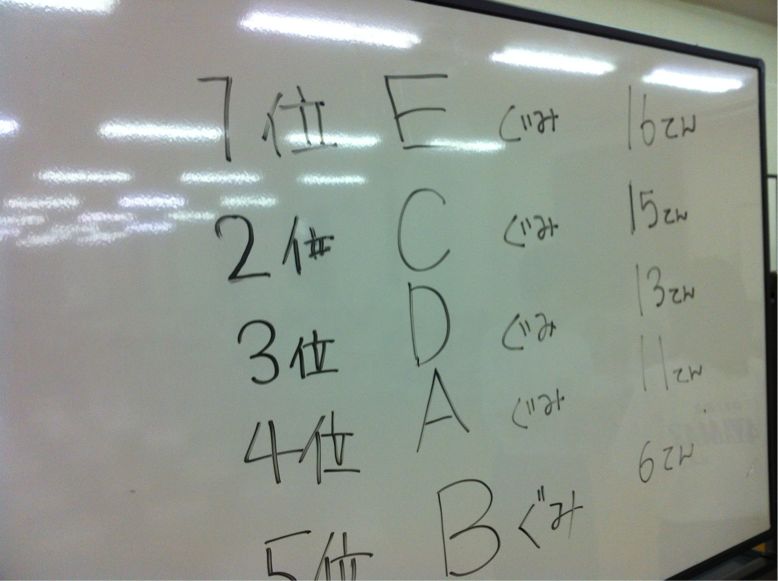 1位 E ぐみ 16てん
2位 C ぐみ 15てん
3位 D ぐみ 13てん
4位 A ぐみ 11てん
5位 B ぐみ 6てん